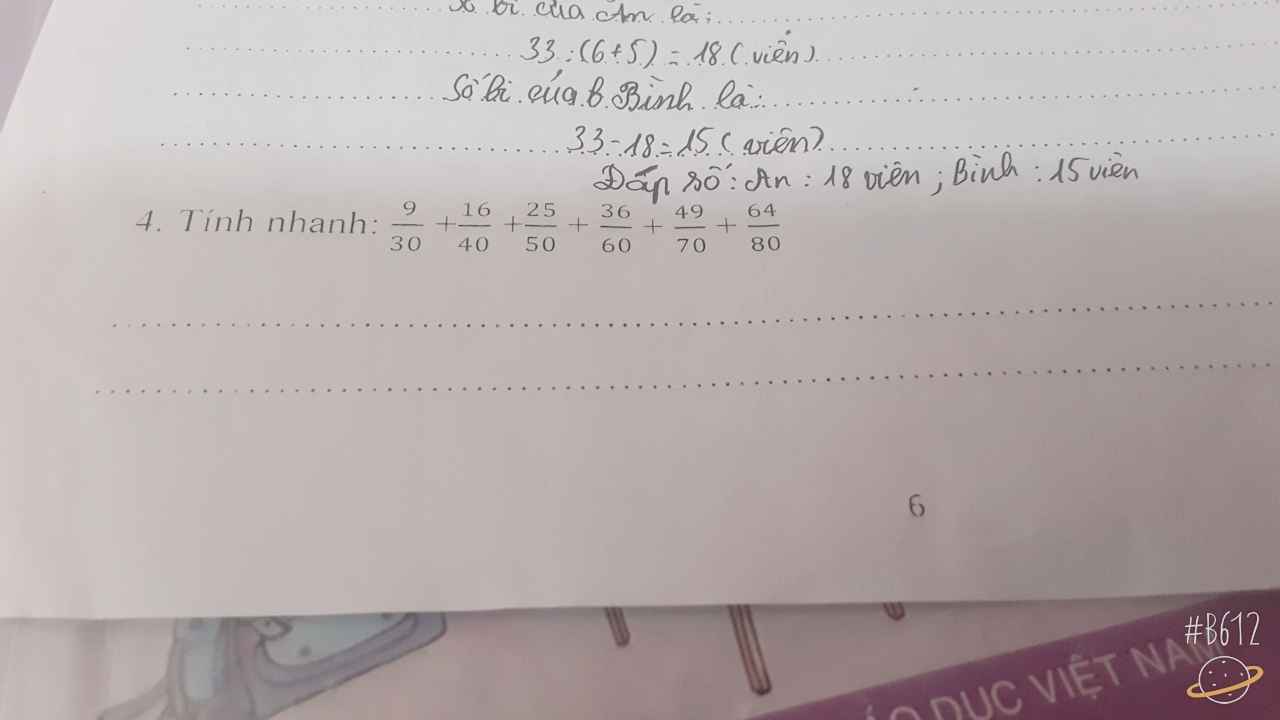 Số bi của An là:
33 : (6+5) = 18 (viên)
Số bi của b Bình là:
33 - 18 = 15 (viên)
Đáp số: An : 18 viên ; Bình : 15 viên
4. Tính nhanh: 9/30 + 16/40 + 25/50 + 36/60 + 49/70 + 64/80
6
#B612
DỤC VIỆT NAM